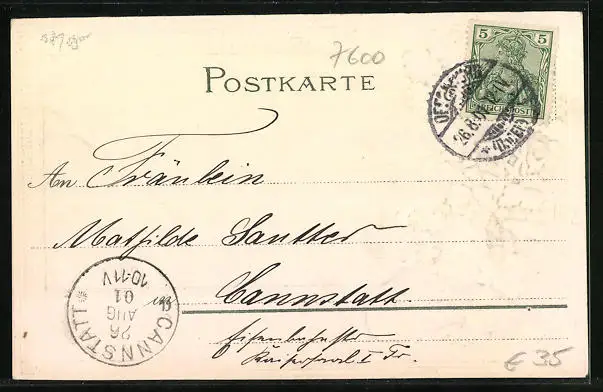 7600
POSTKARTE
5 5
REICHSPOST
26.8.01
An Fräulein
Mathilde Sautter
in Cannstatt.
Eisenbahnstr.
I Tr.
CANNSTATT
26
AUG
01
10-11V
€ 35